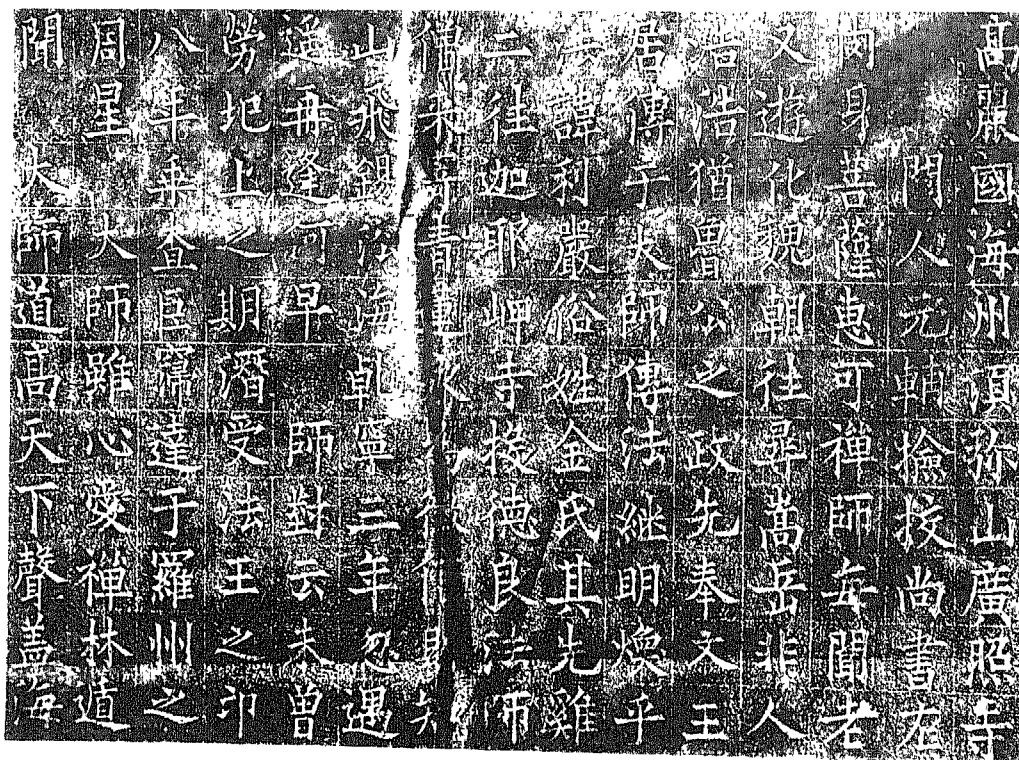 高麗國海州湏弥山廣照寺
門人元輔撿挍尚書左
身菩薩惠可禅師每聞老
又遊化魏朝往尋嵩岳非人
浩浩猶魯公之政先奉文王
居傳于大師傳法継明煥乎
法諱利嚴俗姓金氏其先雞
二往迦耶岬寺投德良法師
来青
山飛錫海乹寧三年忽遇
遥再逢何早師對云未曽
勞圯上之期潛受法王之印
八年乗查巨寖達于羅州之
周星大師雖心愛禅林道
聞大師道高天下聲盖海